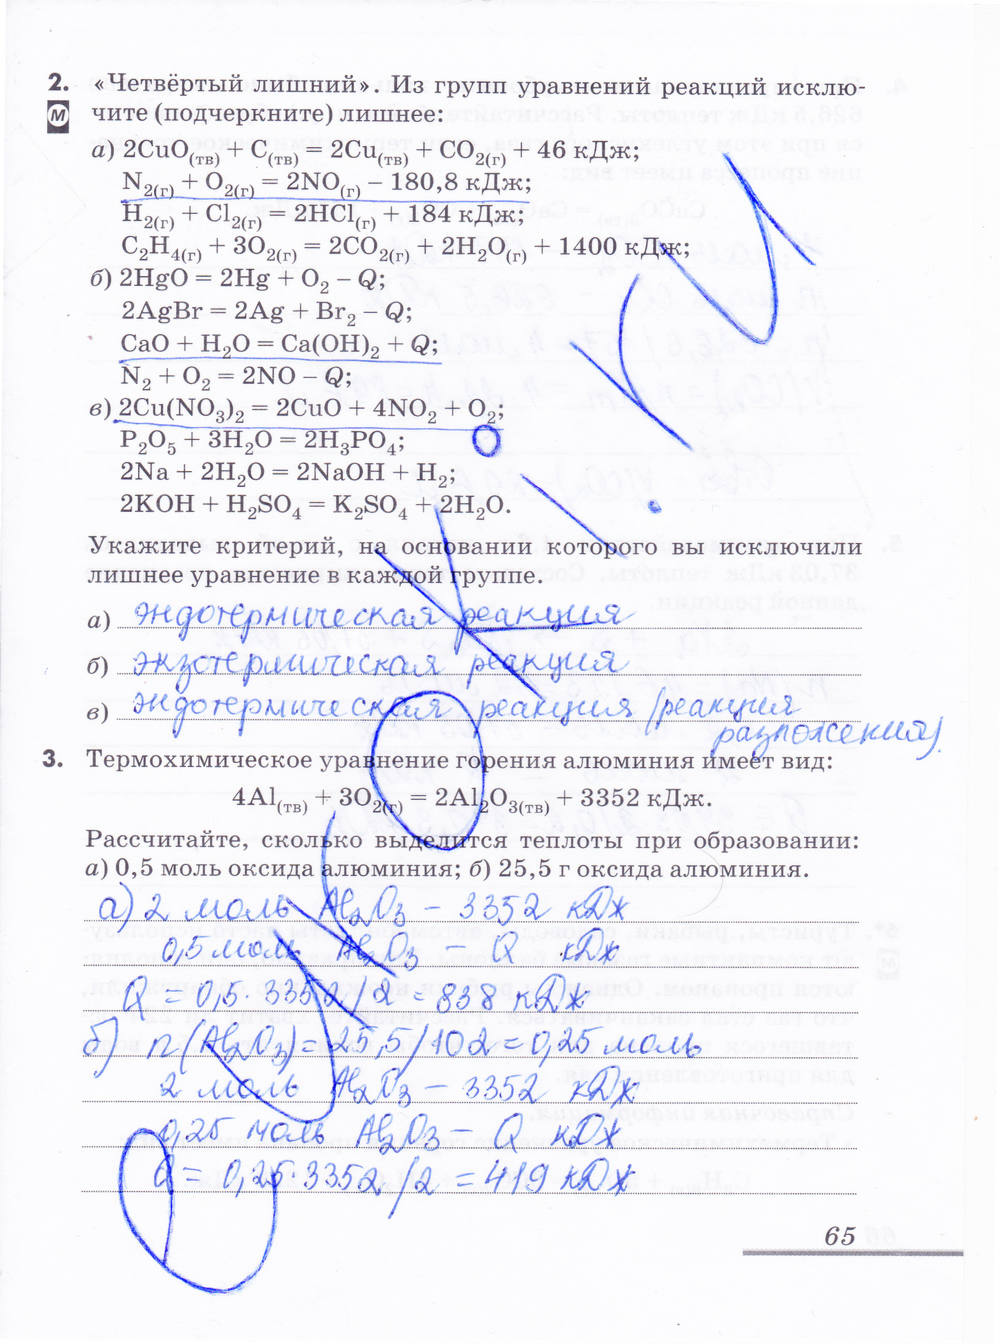 2. «Четвёртый лишний». Из групп уравнений реакций исклю-
М чите (подчеркните) лишнее:
а) 2CuO(тв) + C(тв) = 2Cu(тв) + CO2(г) + 46 кДж;
N2(г) + O2(г) = 2NO(г) – 180,8 кДж;
H2(г) + Cl2(г) = 2HCl(г) + 184 кДж;
C2H4(г) + 3O2(г) = 2CO2(г) + 2H2O(г) + 1400 кДж;
б) 2HgO = 2Hg + O2 – Q;
2AgBr = 2Ag + Br2 – Q;
CaO + H2O = Ca(OH)2 + Q;
N2 + O2 = 2NO – Q;
в) 2Cu(NO3)2 = 2CuO + 4NO2 + O2;
P2O5 + 3H2O = 2H3PO4;
2Na + 2H2O = 2NaOH + H2;
2KOH + H2SO4 = K2SO4 + 2H2O.
Укажите критерий, на основании которого вы исключили
лишнее уравнение в каждой группе.
а) эндотермическая реакция
б) экзотермическая реакция
в) эндотермическая реакция (реакция
разложения).
3. Термохимическое уравнение горения алюминия имеет вид:
4Al(тв) + 3O2(г) = 2Al2O3(тв) + 3352 кДж.
Рассчитайте, сколько выделится теплоты при образовании:
а) 0,5 моль оксида алюминия; б) 25,5 г оксида алюминия.
а) 2 моль Al2O3 – 3352 кДж
0,5 моль Al2O3 – Q кДж
Q = 0,5 · 3352 / 2 = 838 кДж
б) n(Al2O3) = 25,5/102 = 0,25 моль
2 моль Al2O3 – 3352 кДж
0,25 моль Al2O3 – Q кДж
Q = 0,25·3352/2 = 419 кДж
65